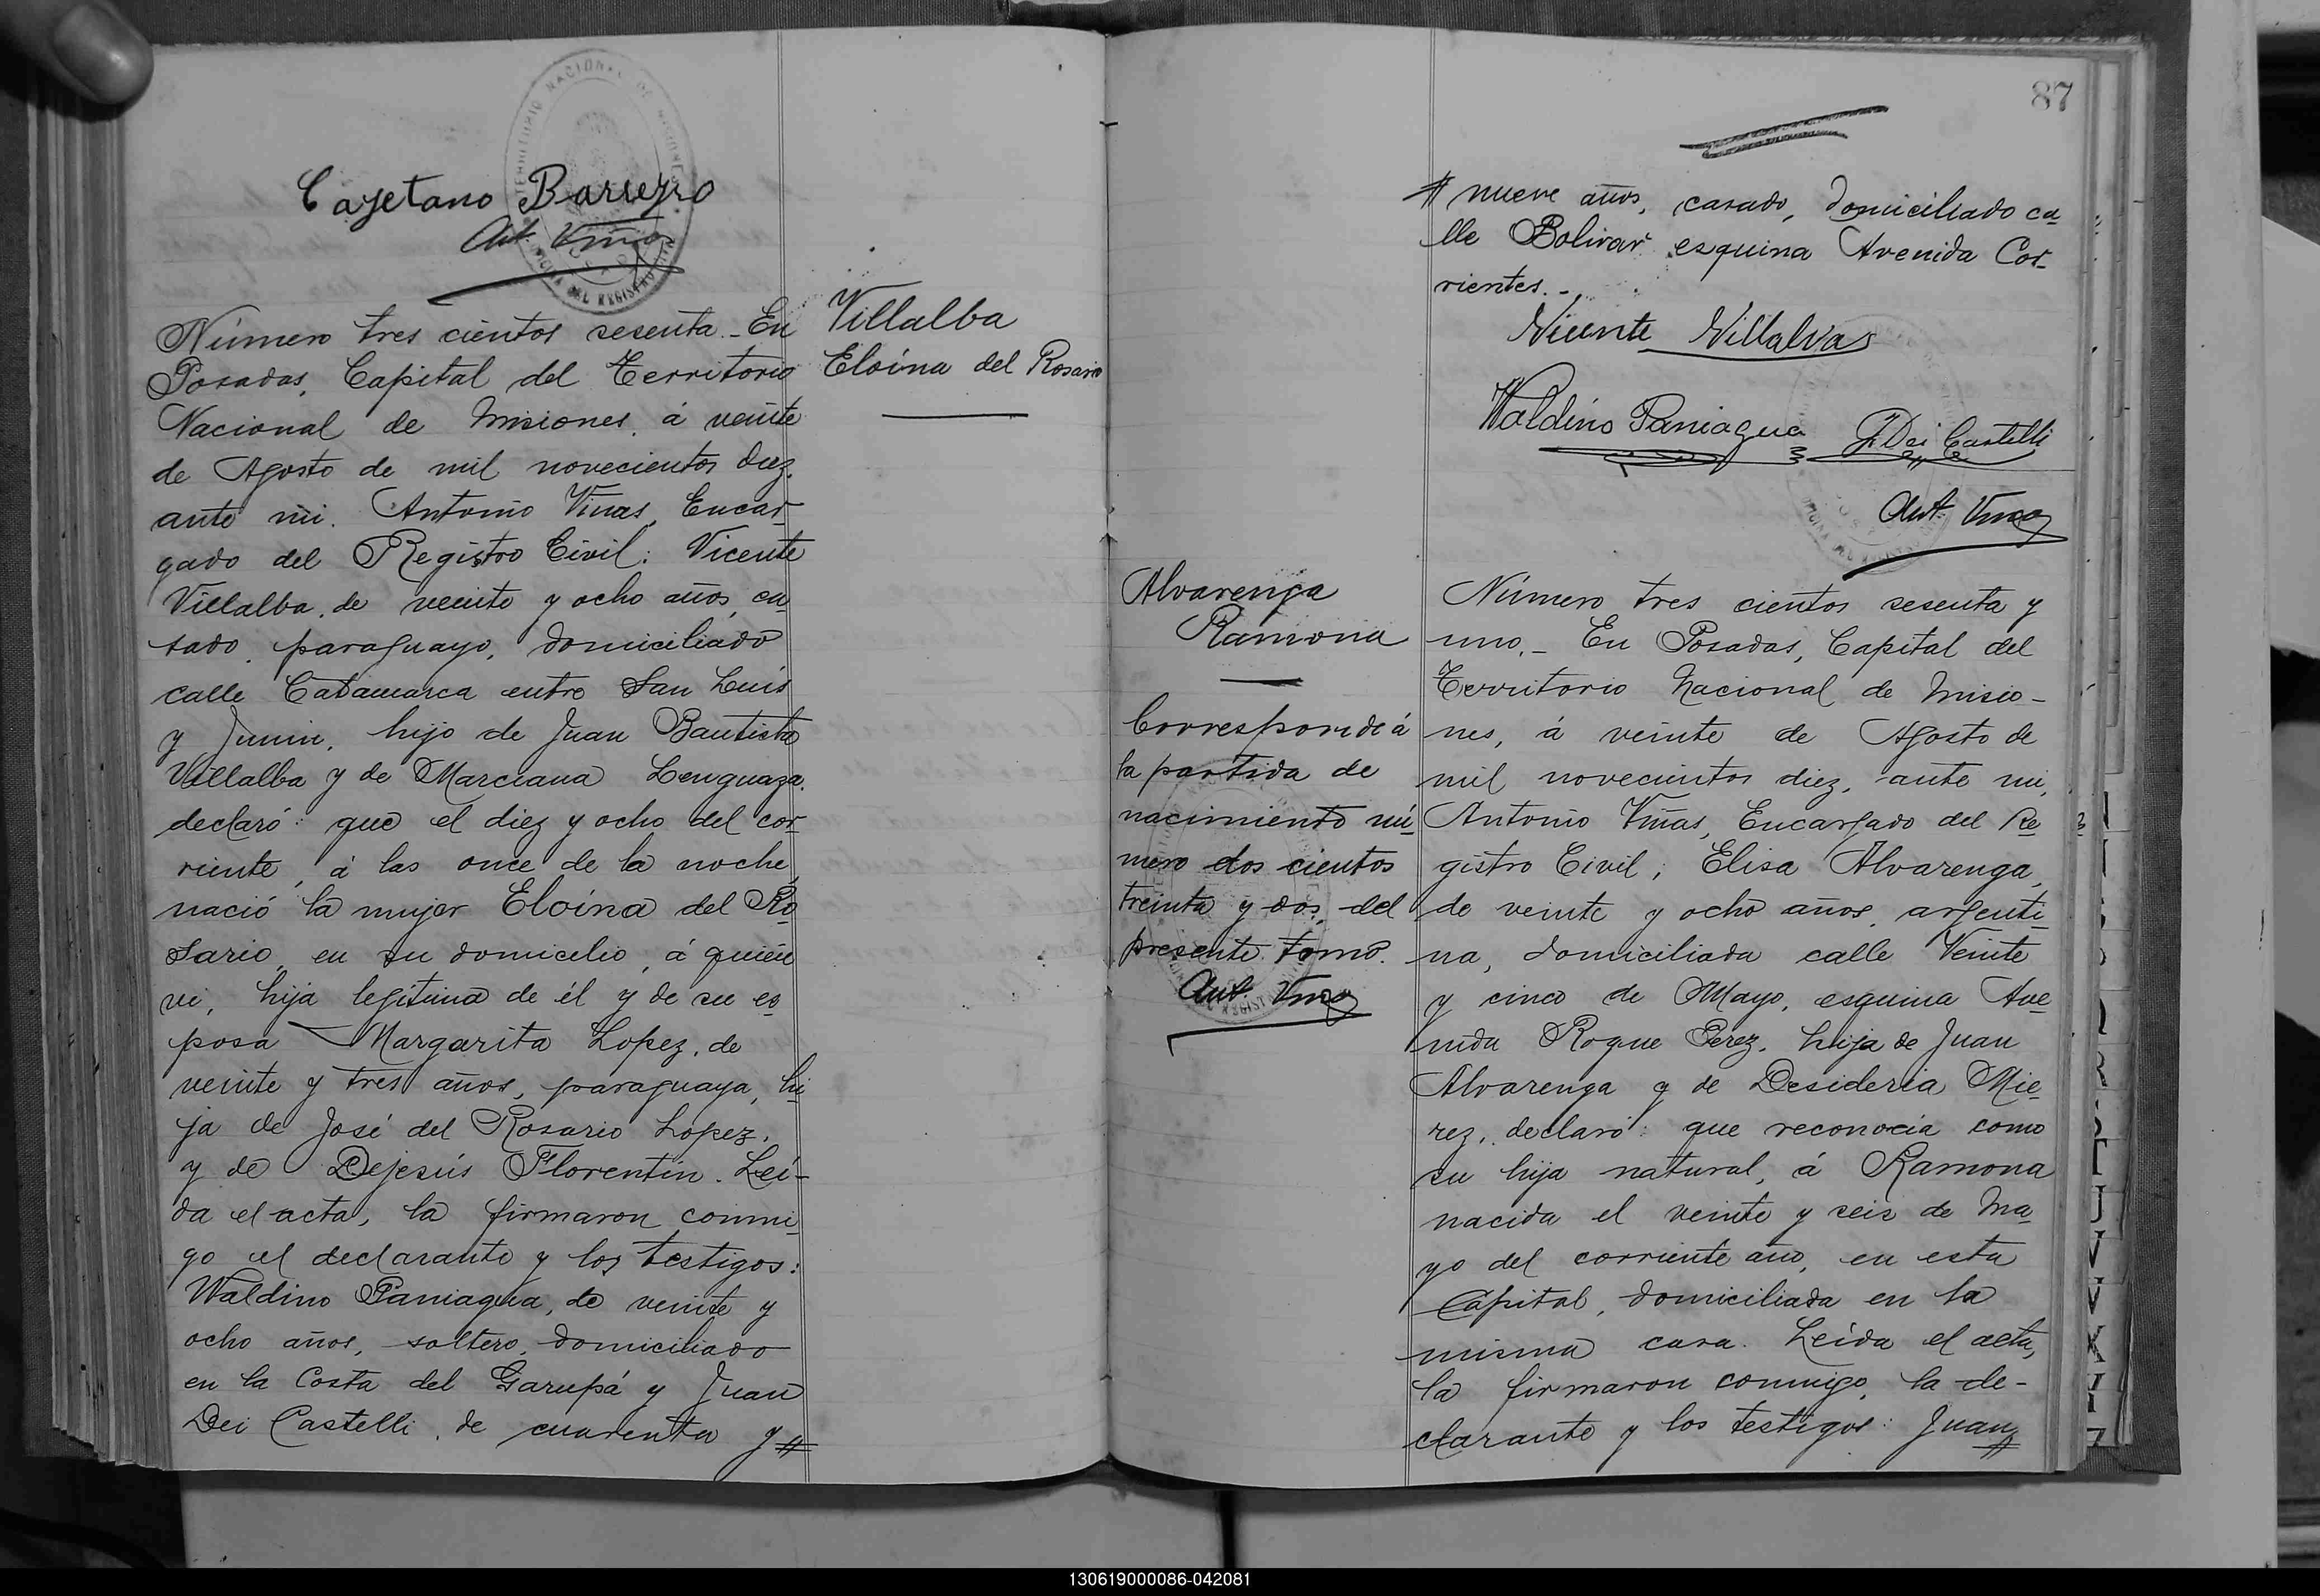 Cayetano Barreyro
Ant. Viñas
Villalba
Eloína del Rosario
Número tres cientos sesenta.- En
Posadas, Capital del Territorio
Nacional de Misiones, á veinte
de Agosto de mil novecientos diez,
ante mi, Antonio Viñas, Encar-
gado del Registro Civil: Vicente
Villalba, de veinte y ocho años, ca
sado, paraguayo, domiciliado
calle Catamarca entre San Luis
y Junin, hijo de Juan Bautista
Villalba y de Marciana Lenguaza,
declaró: que el diez y ocho del cor-
riente, á las once de la noche,
nació la mujer Eloína del Ro
sario, en su domicilio, á quien
vi, hija legítima de él y de su es
posa Margarita Lopez, de
veinte y tres años, paraguaya, hi
ja de José del Rosario Lopez,
y de Dejesús Florentin. Leí-
da el acta, la firmaron conmi
go el declarante y los testigos:
Waldino Paniagua, de veinte y
ocho años, soltero, domiciliado
en la Costa del Garupá y Juan
Dei Castelli, de cuarenta y #
87
# nueve años, casado, domiciliado ca
lle Bolivar esquina Avenida Cor-
rientes.-
Vicente Villalvas
Waldino Paniagua J. Dei Castelli
Ant. Viñas
Alvarenga
Ramona
Corresponde á
la partida de
nacimiento nú
mero dos cientos
treinta y dos, del
presente tomo.
Ant. Viñas
Número tres cientos sesenta y
uno.- En Posadas, Capital del
Territorio Nacional de Misio-
nes, á veinte de Agosto de
mil novecientos diez, ante mi,
Antonio Viñas, Encargado del Re
gistro Civil; Elisa Alvarenga,
de veinte y ocho años, argenti
na, domiciliada calle Veinte
y cinco de Mayo, esquina Ave
nida Roque Perez, hija de Juan
Alvarenga y de Desideria Mie
rez, declaró: que reconocia como
su hija natural, á Ramona
nacida el veinte y seis de Ma
yo del corriente año, en esta
Capital, domiciliada en la
misma casa. Leída el acta,
la firmaron conmigo, la de-
clarante y los testigos: Juan #
130619000086-042081